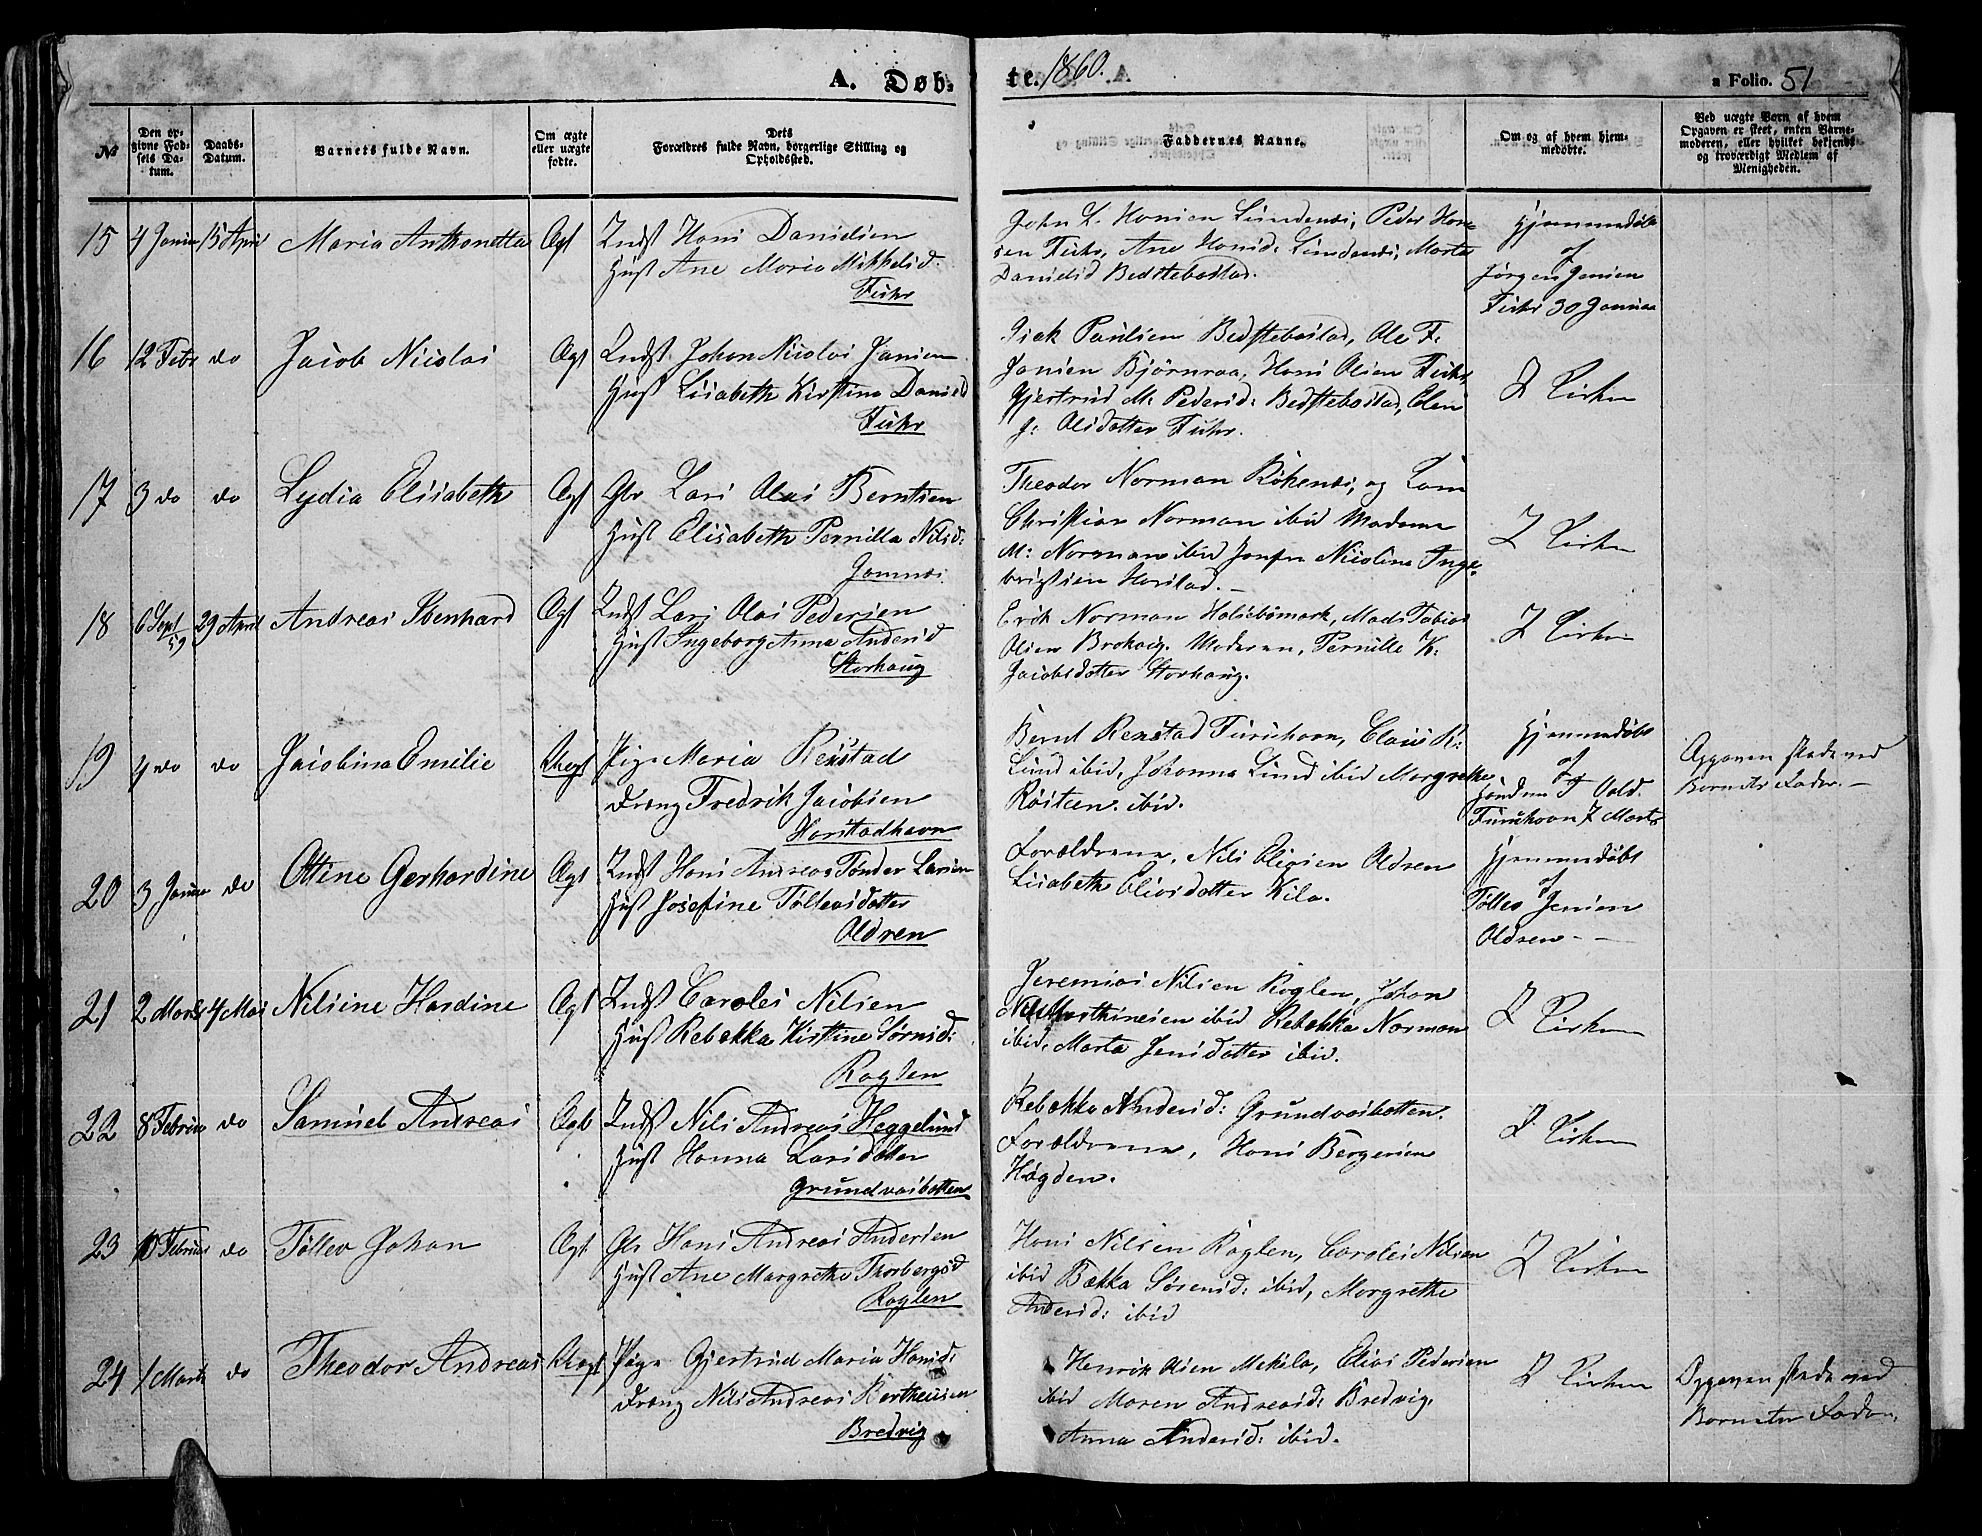 A. Døb-
te. 1860.
a Folio. 51
№
Den op-
givne Fød-
sels Da-
tum.
Daabs-
Datum.
Barnets fulde Navn.
Om ægte
eller uægte
fødte.
Dets
Forældres fulde Navn, borgerlige Stilling og
Opholdssted.
Faddernes Navne.
Om og af hvem hjem-
medøbte.
Ved uægte Barn af hvem
Opgaven er skeet, enten Barne-
moderen, eller hvilket bekjendt
og troværdigt Medlem af
Menigheden.
15 4 Januar 15 April Maria Anthonetta Ægt Indst Hans Danielsen
Hust Ane Maria Mikkelsd.
Fuhr
John L. Hansen Lundenes, Peder Han-
sen Fuhr, Ane Hansd: Lundenes, Marta
Danielsd Bedstebostad.
Hjemmedøbt
af
Jørgen Jensen
Fuhr 30 Januar
16 12 Febr do Jacob Nicolai Ægt Indst. Johan Nicolai Jansen
Hust Lisabeth Kirstina Danielsd
Fuhr
Paulsen Bedstebostad, Ole F.
Jansen Bjørnraa, Hans Olsen Fuhr,
Gjertrud M. Pedersd: Bedstebostad, Elen
J: Olsdatter Fuhr.
I Kirken
17 3 do do Lydia Elisabeth Ægt Gbr Lars Olai Berntsen
Hust Elisabeth Pernilla Nilsd:
Theodor Norman Røkenes, og
Christian Norman ibid Madame
M: Norman ibid Jomfru Nicoline Inge-
brigtsen Harstad.
I Kirken
18 6 Sept 59 29 April Andreas Ebenhard Ægt Indst Lars Olai Pedersen
Hust Ingeborg Anna Andersd
Storhaug
Erik Norman Halsebømark, Mads Tobias
Olsen Brokvig. Moderen, Pernille K.
Jacobsdatter Storhaug.
I Kirken
19 4 do do Jacobina Emilie Uægt Pige Maria Renstad
Dreng Fredrik Jacobsen
Harstadhavn
Bernt Renstad Furuhavn, Claus K:
Lund ibid, Johanna Lund ibid Margrethe
ibid.
Hjemmedøbt
af
Vold.
Furuhavn 7 Marts
Opgaven skede ved
Barnets Fader.
20 3 Januar do Ottine Gerhardine Ægt Indst Hans Andreas Tønder Larsen
Hust Josefine Tøllevsdatter
Aldren
Forældrene, Nils Eliasen Aldsen
Lisabeth Eliasdatter Kila.
Hjemmedøbt
af
Tøllev Jensen
Aldsen
21 2 Marts 4 Mai Nilsine Hardine Ægt Indst Caroles Nilsen
Hust Rebekka Kirstine Sørnsd:
Roglen
Jeremias Nilsen Roglen, Johan
Nils Marthinesen ibid Rebekka Norman
ibid, Marta Jensdatter ibid.
I Kirken
22 8 Februar do Samuel Andreas Ægt Indst Nils Andreas Heggelund
Hust Hanna Larsdatter
Grundvasbotten
Rebekka Andersd: Grundvasbotten.
Forældrene, Hans Bergersen
Høgden.
I Kirken
23 10 Februar do Tøllev Johan Ægt Gbr Hans Andreas Andersen
Hust Ane Margrethe Thorbergsd
Roglen
Hans Nilsen Roglen, Caroles Nilsen
ibid Bækka Sørensd: ibid, Margrethe
Andersd: ibid
I Kirken
24 1 Marts do Theodor Andreas Uægt Pige Gjertrud Maria Hansd:
Dreng Nils Andreas Bertheusen
Bredvig
Henrik Olsen Mekila, Elias Pedersen
ibid Maren Andreasd: Bredvig.
Anna Andersd: ibid.
I Kirken
Opgaven skede ved
Barnets Fader.